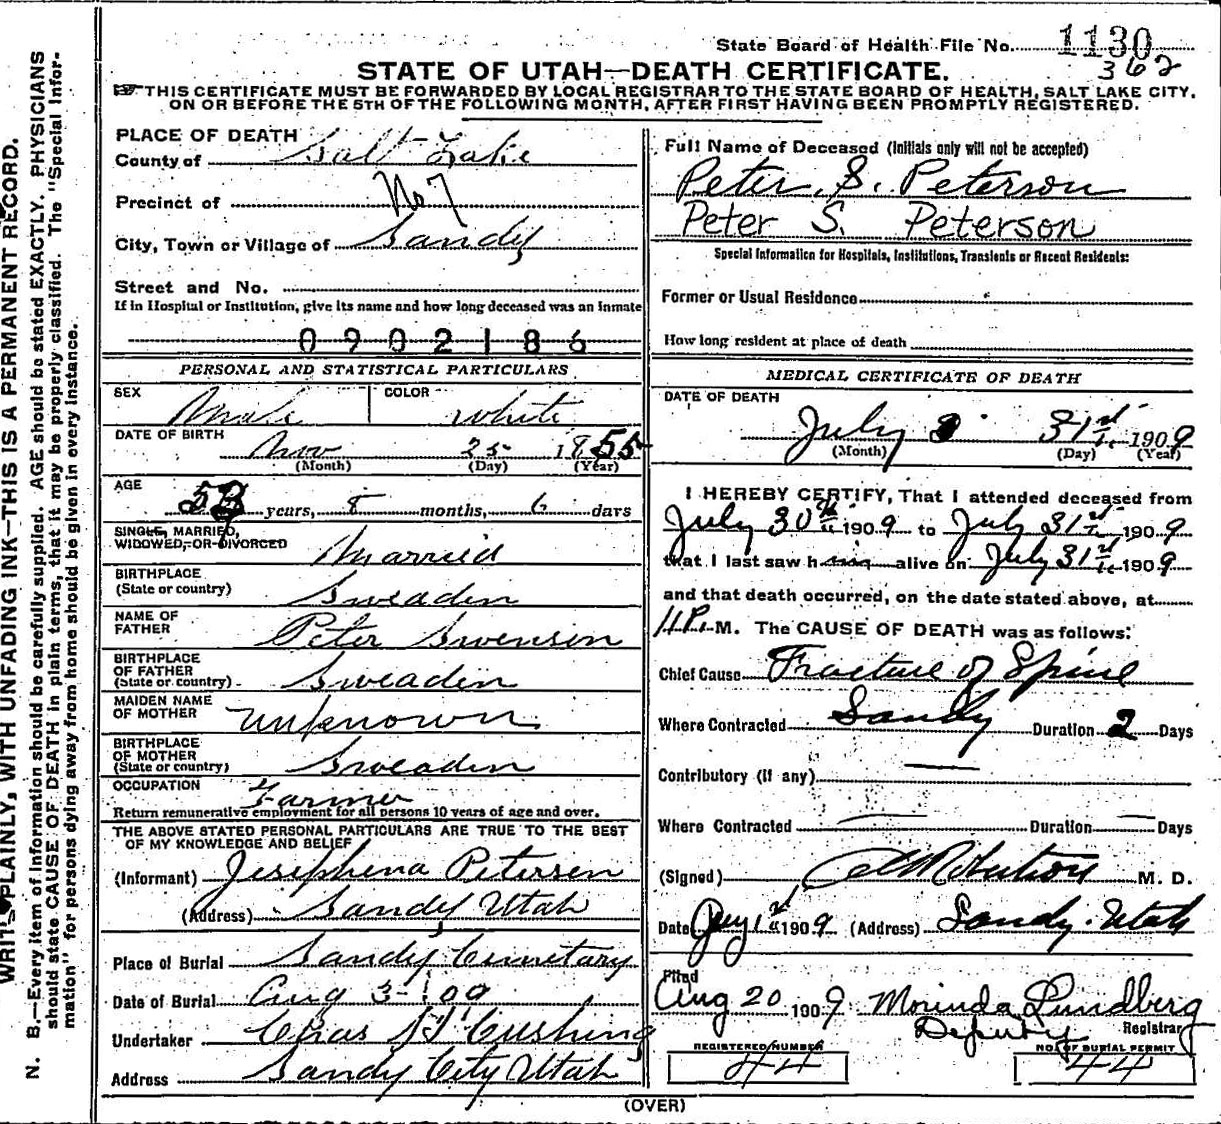 State Board of Health File No. 1130
362
STATE OF UTAH—DEATH CERTIFICATE.
☞THIS CERTIFICATE MUST BE FORWARDED BY LOCAL REGISTRAR TO THE STATE BOARD OF HEALTH, SALT LAKE CITY,
ON OR BEFORE THE 5TH OF THE FOLLOWING MONTH, AFTER FIRST HAVING BEEN PROMPTLY REGISTERED.
PLACE OF DEATH
County of Salt Lake
Precinct of No 7
City, Town or Village of Sandy
Street and No.
If in Hospital or Institution, give its name and how long deceased was an inmate
0902186
PERSONAL AND STATISTICAL PARTICULARS
SEX Male COLOR White
DATE OF BIRTH Nov 25 1855
(Month) (Day) (Year)
AGE 53 years, 8 months, 6 days
SINGLE, MARRIED,
WIDOWED, OR DIVORCED Married
BIRTHPLACE
(State or country) Sweaden
NAME OF
FATHER Peter Swenson
BIRTHPLACE
OF FATHER
(State or country) Sweaden
MAIDEN NAME
OF MOTHER Unknown
BIRTHPLACE
OF MOTHER
(State or country) Sweaden
OCCUPATION Farmer
Return remunerative employment for all persons 10 years of age and over.
THE ABOVE STATED PERSONAL PARTICULARS ARE TRUE TO THE BEST
OF MY KNOWLEDGE AND BELIEF
(Informant) Josephena Petersen
(Address) Sandy Utah
Place of Burial Sandy Cemetary
Date of Burial Aug 3- 09
Undertaker Chas Cushing
Address Sandy City Utah
Full Name of Deceased (Initials only will not be accepted)
Peter S. Peterson
Peter S. Peterson
Special Information for Hospitals, Institutions, Transients or Recent Residents:
Former or Usual Residence
How long resident at place of death
MEDICAL CERTIFICATE OF DEATH
DATE OF DEATH
July 31st 1909
(Month) (Day) (Year)
I HEREBY CERTIFY, That I attended deceased from
July 30th 1909 to July 31st 1909
that I last saw him alive on July 31st 1909
and that death occurred, on the date stated above, at
11 P. M. The CAUSE OF DEATH was as follows:
Chief Cause Fracture of Spine
Where Contracted Sandy Duration 2 Days
Contributory (if any)
Where Contracted Duration Days
(Signed) Robertson M. D.
Date 1st 1909 (Address) Sandy. Utah
Filed
Aug 20 1909 Morinda Lundberg
Deputy Registrar
REGISTERED NUMBER
44
NO. OF BURIAL PERMIT
44
(OVER)
WRITE PLAINLY, WITH UNFADING INK—THIS IS A PERMANENT RECORD.
N. B.—Every item of information should be carefully supplied. AGE should be stated EXACTLY. PHYSICIANS
should state CAUSE OF DEATH in plain terms, that it may be properly classified. The "Special Infor-
mation" for persons dying away from home should be given in every instance.